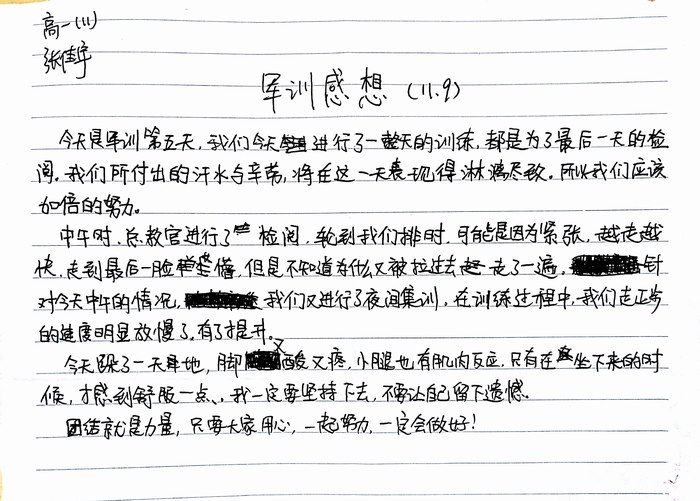 高一(11)
张佳宇
军训感想(11.9)
今天是军训第五天,我们今天进行了一整天的训练,都是为了最后一天的检
阅。我们所付出的汗水与辛劳,将在这一天表现得淋漓尽致。所以我们应该
加倍的努力。
中午时,总教官进行了检阅,轮到我们排时,可能是因为紧张,越走越
快,走到最后一脸懵,但是不知道为什么又被拉过去走了一遍,针
对今天中午的情况,我们又进行了夜间集训,在训练过程中,我们走正步
的速度明显放慢了,有了提升。
今天跺了一天草地,脚又酸又疼,小腿也有肌肉反应,只有在坐下来的时
候,才感到舒服一点、我一定要坚持下去,不要让自己留下遗憾。
团结就是力量,只要大家用心,一起努力,一定会做好!